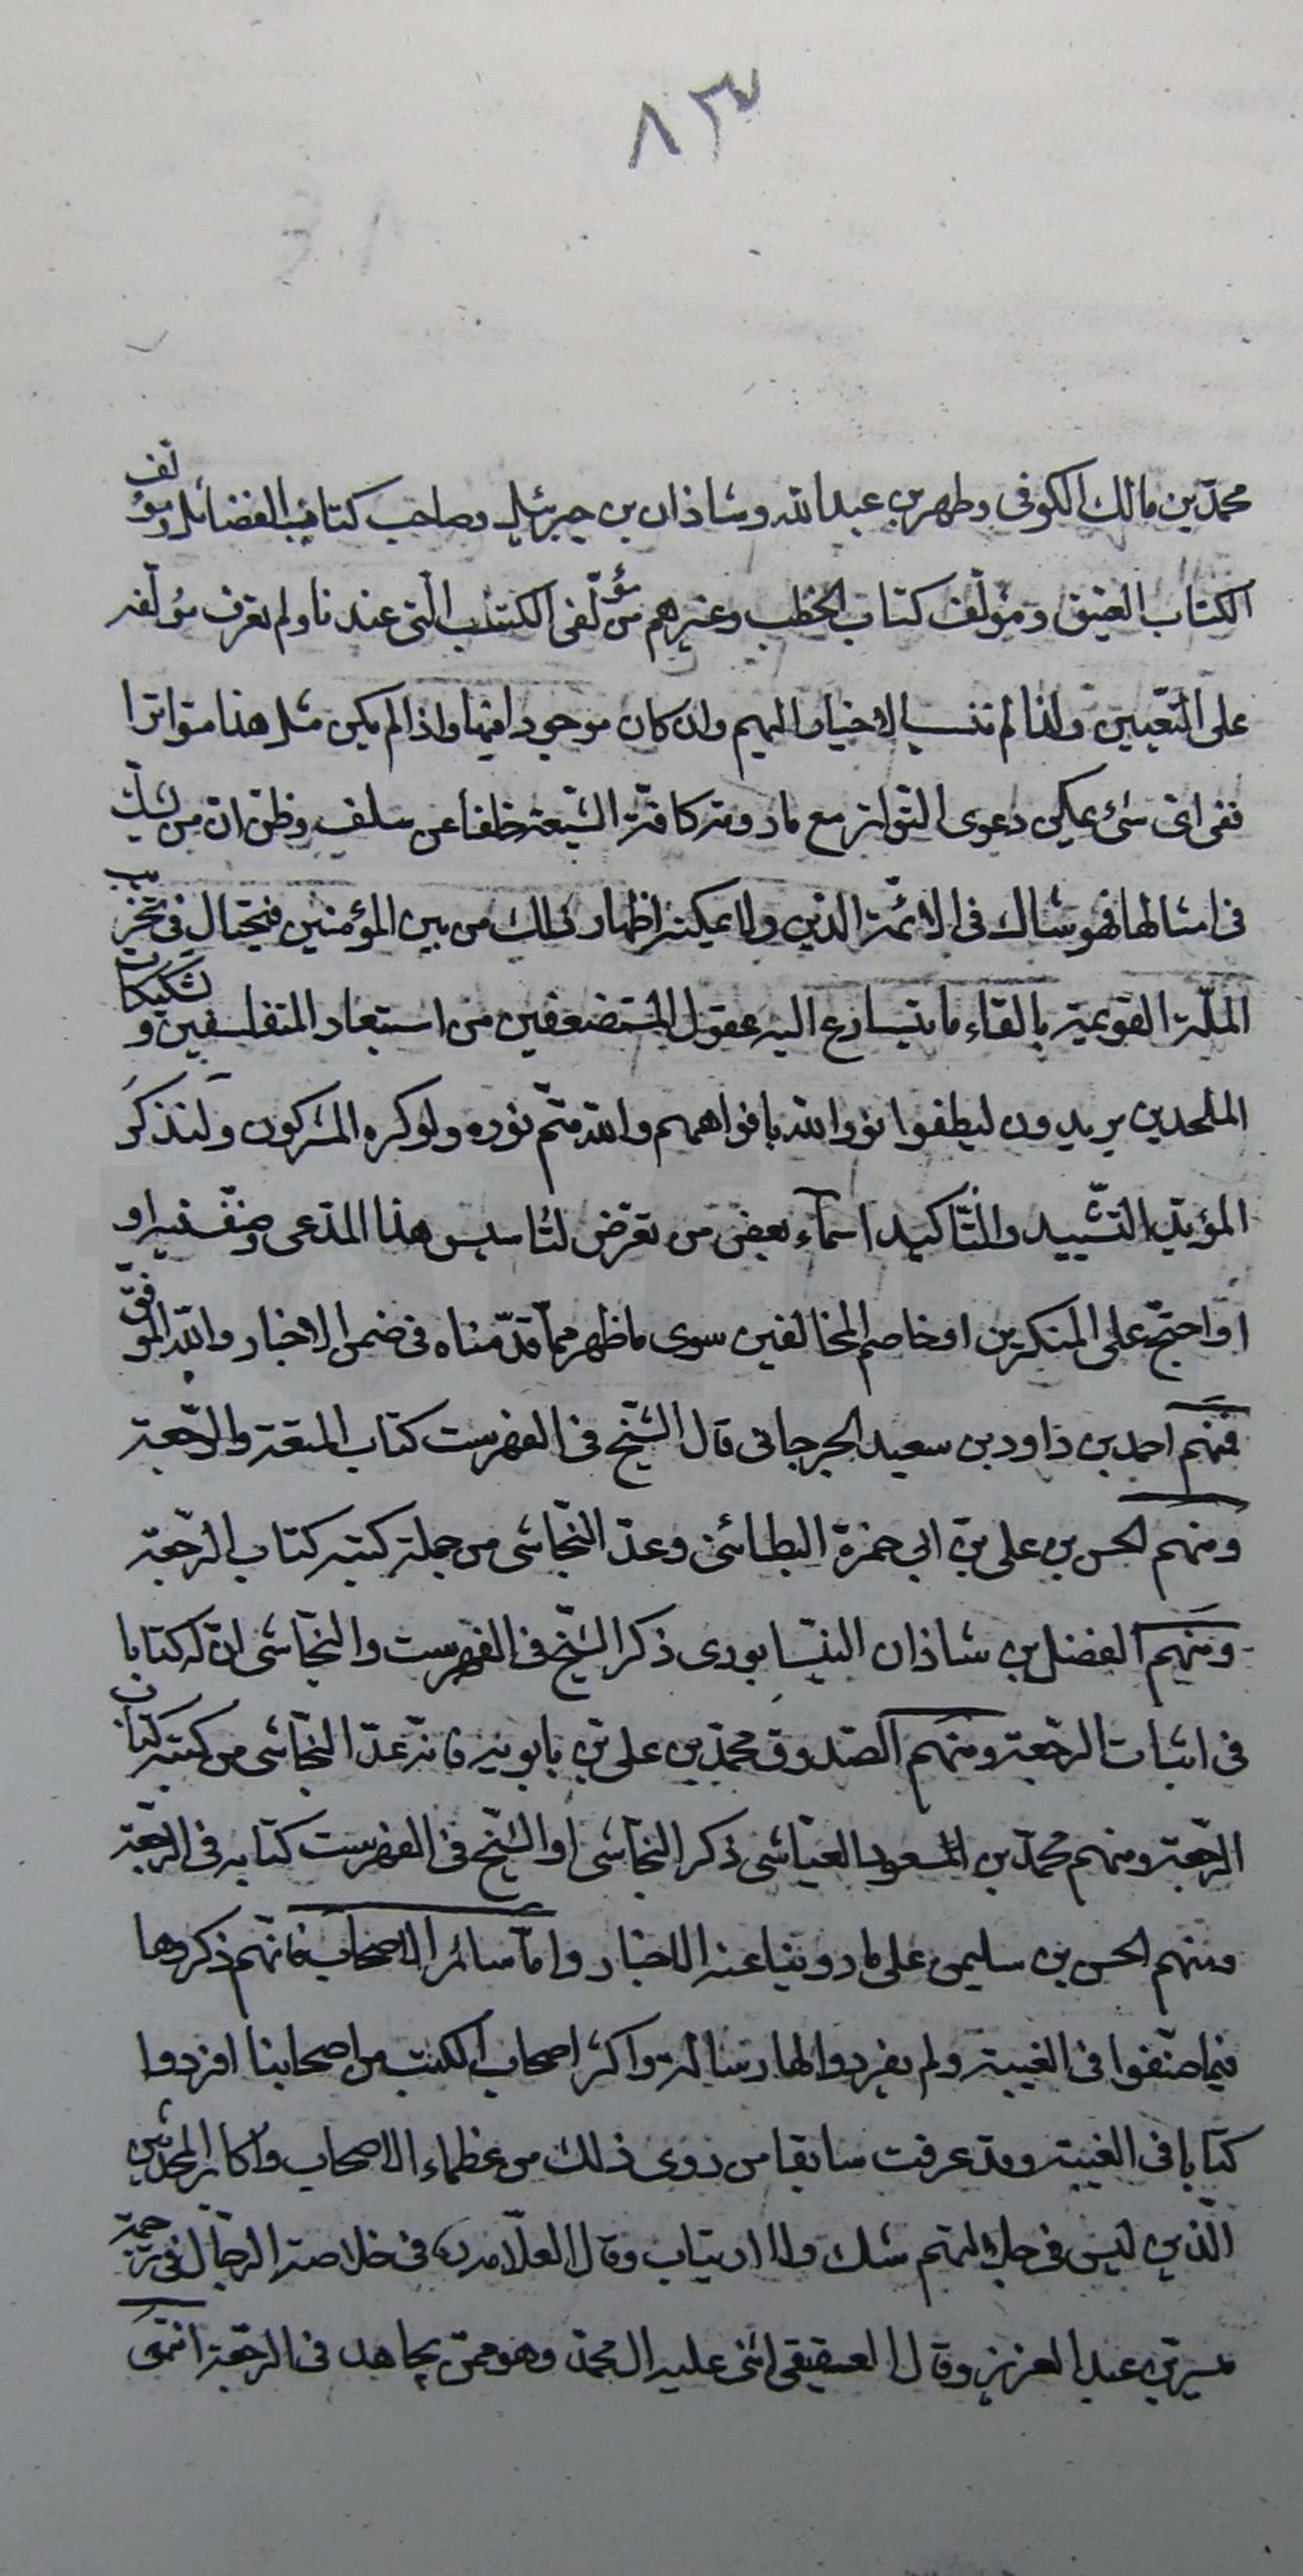 ٨٣
محمّد بن مالك الكوفى وطهر بن عبدالله وشاذان بن جبرئيل وصاحب كتاب الفضائل ومؤلف
الكتاب العتيق ومؤلّف كتاب الخطب وغيرهم من مؤلّفى الكتب الّتى عندنا ولم نعرف مؤلّفه
على التّعيين ولذا لم ننسب الاخبار اليهم وان كان موجودا فيها واذا لم يكن مثل هذا متواترا
ففى اىّ شئ يمكن دعوى التّواتر مع ما روته كافّة الشّيعة خلفا عن سلف وظنّى انّ من يشكّ
فى امثالها فهو شاك فى الائمّة الدّين ولا يمكنه اظهار ذلك من بين المؤمنين فيحتال فى تخريب
الملّة القويمة بالقاء ما يتسارع اليه عقول المستضعفين من استبعاد المتفلسفين وتشكيكات
الملحدين يريدون ليطفوا نور الله بافواههم والله متمّ نوره ولو كره المشركون ولنذكر
المزيد التّشييد والتّأكيد اسماء بعض من تعرّض لتاسيس هذا المدّعى وصنّف فيه او
او احتجّ على المنكرين او خاصم المخالفين سوى ما ظهر ممّا قدّمناه فى ضمن الاخبار والله الموفّق
فمنهم احمد بن داود بن سعيد الجرجانى قال الشّيخ فى الفهرست كتاب المتعة والرّجعة
ومنهم الحسن بن على بن ابى حمزة البطائنى وعدّ النّجاشى من جملة كتبه كتاب الرّجعة
ومنهم الفضل بن شاذان النيشابورى ذكر الشّيخ فى الفهرست والنّجاشى انّ له كتابا
فى اثبات الرّجعة ومنهم الصّدوق محمّد بن على بن بابويه فانّه عدّ النّجاشى من كتبه كتاب
الرّجعة ومنهم محمّد بن المسعود العيّاشى ذكر النّجاشى او الشّيخ فى الفهرست كتابه فى الرّجعة
ومنهم الحسن بن سليمن على ما روينا عنه الاخبار وامّا سائر الاصحاب فانّهم ذكروها
فيما صنّفوا فى الغيبة ولم يفردوا لها رسالة واكثر اصحاب الكتب من اصحابنا افردوا
كتابا فى الغيبة وقد عرفت سابقا من روى ذلك من عظماء الاصحاب واكابر المحدّثين
الّذين ليس فى جلالتهم شك ولا ارتياب وقال العلّامة ره فى خلاصة الرّجال فى ترجمة
ميسر بن عبد العزيز وقال العقيقى اثنى عليه ال محمّد وهو ممّن يجاهد فى الرّجعة انتهى